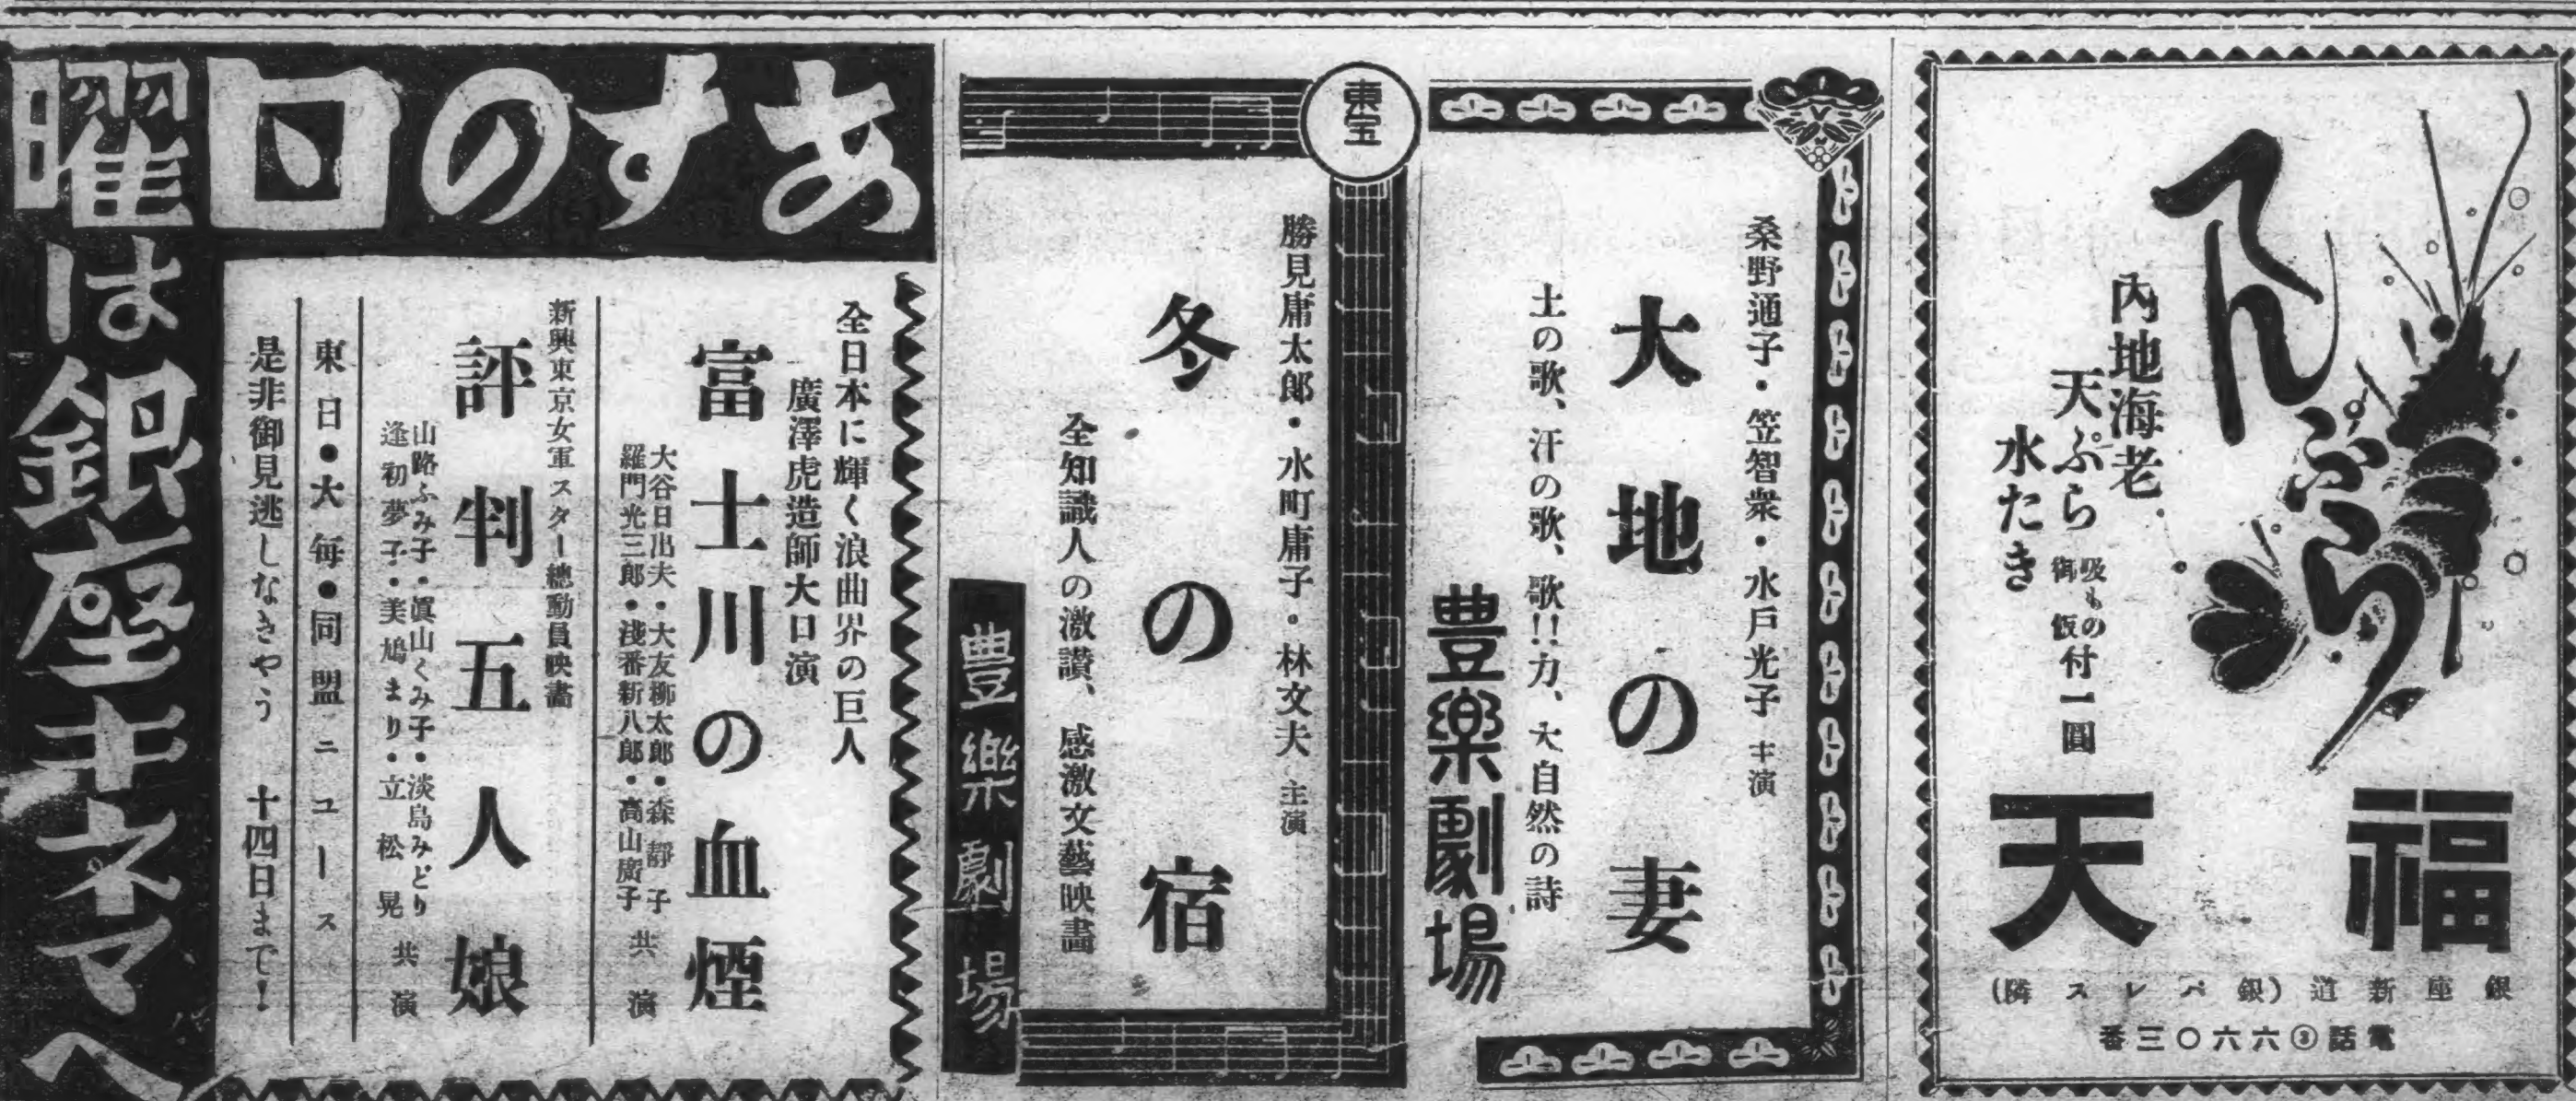 てんぷら
内地海老
天ぷら
吸もの
御飯付一圓
水たき
福天
銀座新道(銀パレス隣)
電話③六六〇三番
桑野通子・笠智衆・水戸光子 主演
大地の妻
土の歌、汗の歌、歌!!力、大自然の詩
豊樂劇場
東宝
勝見庸太郎・水町庸子・林文夫 主演
冬の宿
全知識人の激讃、感激文藝映畵
豊樂劇場
あすの日曜は銀座キネマへ
全日本に輝く浪曲界の巨人
廣澤虎造師大口演
富士川の血煙
大谷日出夫・大友柳太郎・森靜子
羅門光三郎・淺香新八郎・高山廣子 共演
新興東京女軍スター總動員映畵
評判五人娘
山路ふみ子・眞山くみ子・淡島みどり
逢初夢子・美鳩まり・立松晃 共演
東日・大毎・同盟ニユース
是非御見逃しなきやう 十四日まで!